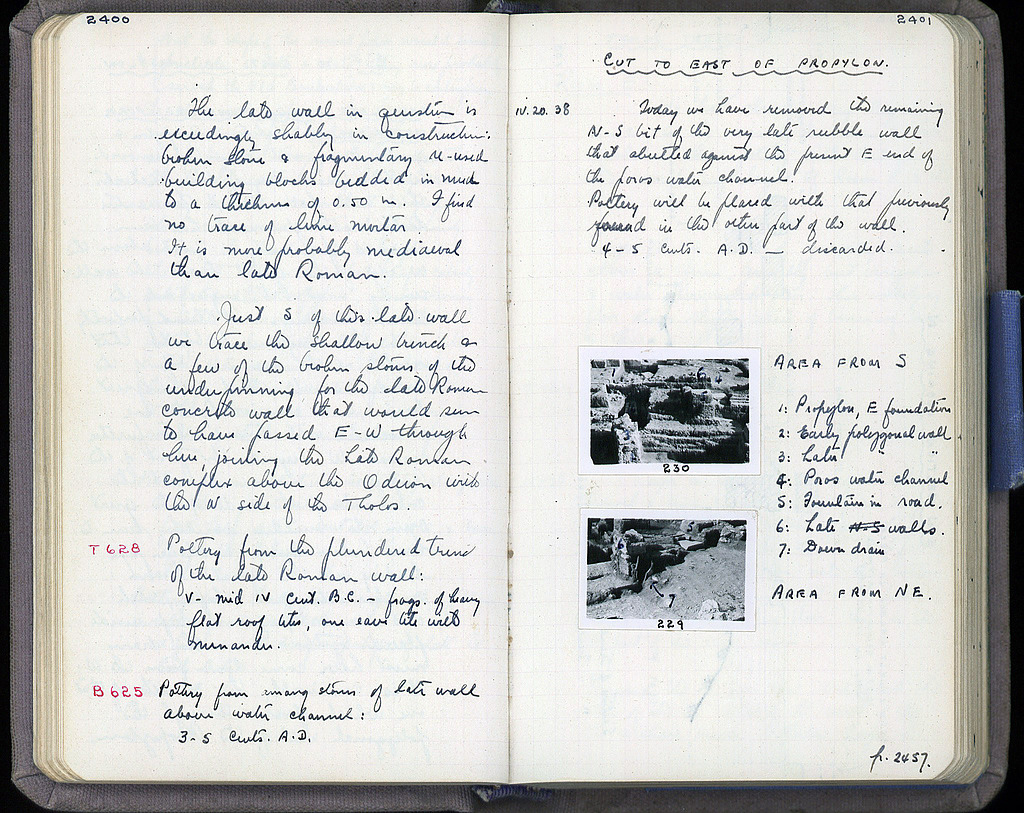 2400
The late wall in question is
exceedingly shabby in construction:
broken stone & fragmentary re-used
building blocks bedded in mud
to a thickness of 0.50 m. I find
no trace of lime mortar
It is more probably mediaeval
than late Roman.
Just S of this late wall
we trace the shallow trench &
a few of the broken stones of the
underpinning for the late Roman
concrete wall that would seem
to have passed E-W through
here, joining the Late Roman
complex above the Odeion with
the N side of the Tholos.
T 628
Pottery from the plundered trench
of the late Roman wall:
V - mid IV cent. B.C. - frags. of heavy
flat roof tiles, one eave tile with
maeander.
B 625
Pottery from among stones of late wall
above water channel:
3-5 cents. A.D.
2401
CUT TO EAST OF PROPYLON.
IV.20.38
Today we have removed the remaining
N-S bit of the very late rubble wall
that abutted against the present E end of
the poros water channel.
Pottery will be placed with that previously
found in the other part of the wall.
4-5 cents. A.D. — discarded.
230
AREA FROM S
1: Propylon, E foundation
2: Early polygonal wall
3: Late " "
4: Poros water channel
5: Fountain in road.
6: Late N-S walls.
7: Down drain
7
229
AREA FROM NE.
p. 2457.